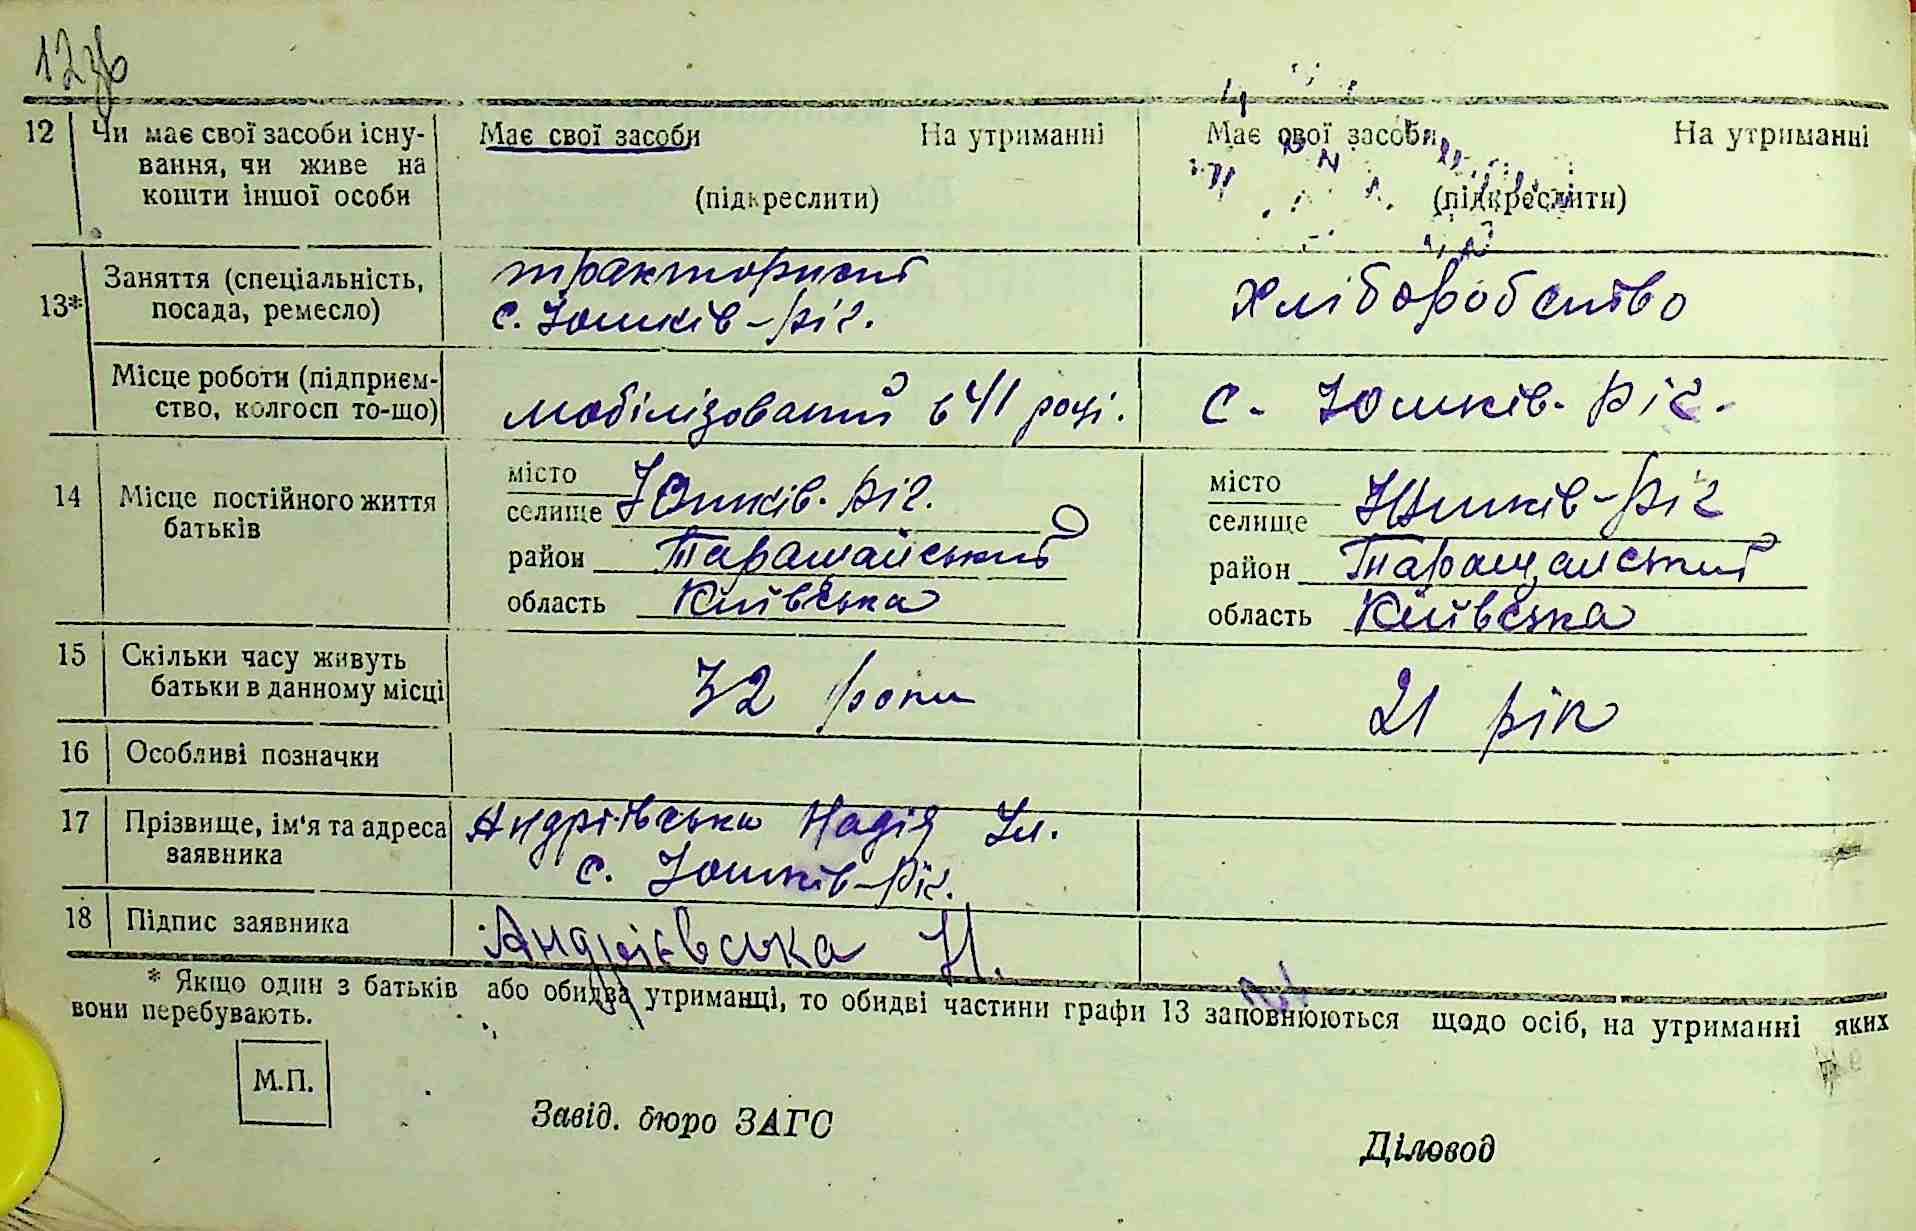 12зв
12 Чи має свої засоби існу- Має свої засоби На утриманні Має свої засоби На утриманні
вання, чи живе на
кошти іншої особи (підкреслити) (підкреслити)
13* Заняття (спеціальність, тракторист хліборобство
посада, ремесло) с. Юшків-ріг.
Місце роботи (підприєм- мобілізований в 41 році. с. Юшків-ріг.
ство, колгосп то-що)
14 Місце постійного життя місто Юшків-ріг. місто Юшків-ріг
батьків селище селище
район Таращанський район Таращанський
область Київська область Київська
15 Скільки часу живуть 32 роки 21 рік
батьки в данному місці
16 Особливі позначки
17 Прізвище, ім'я та адреса Андріївська Надія Ул.
заявника с. Юшків-Ріг.
18 Підпис заявника Андрієвська Н.
* Якщо один з батьків або обидва утриманці, то обидві частини графи 13 заповнюються щодо осіб, на утриманні яких
вони перебувають.
М.П.
Завід. бюро ЗАГС
Діловод